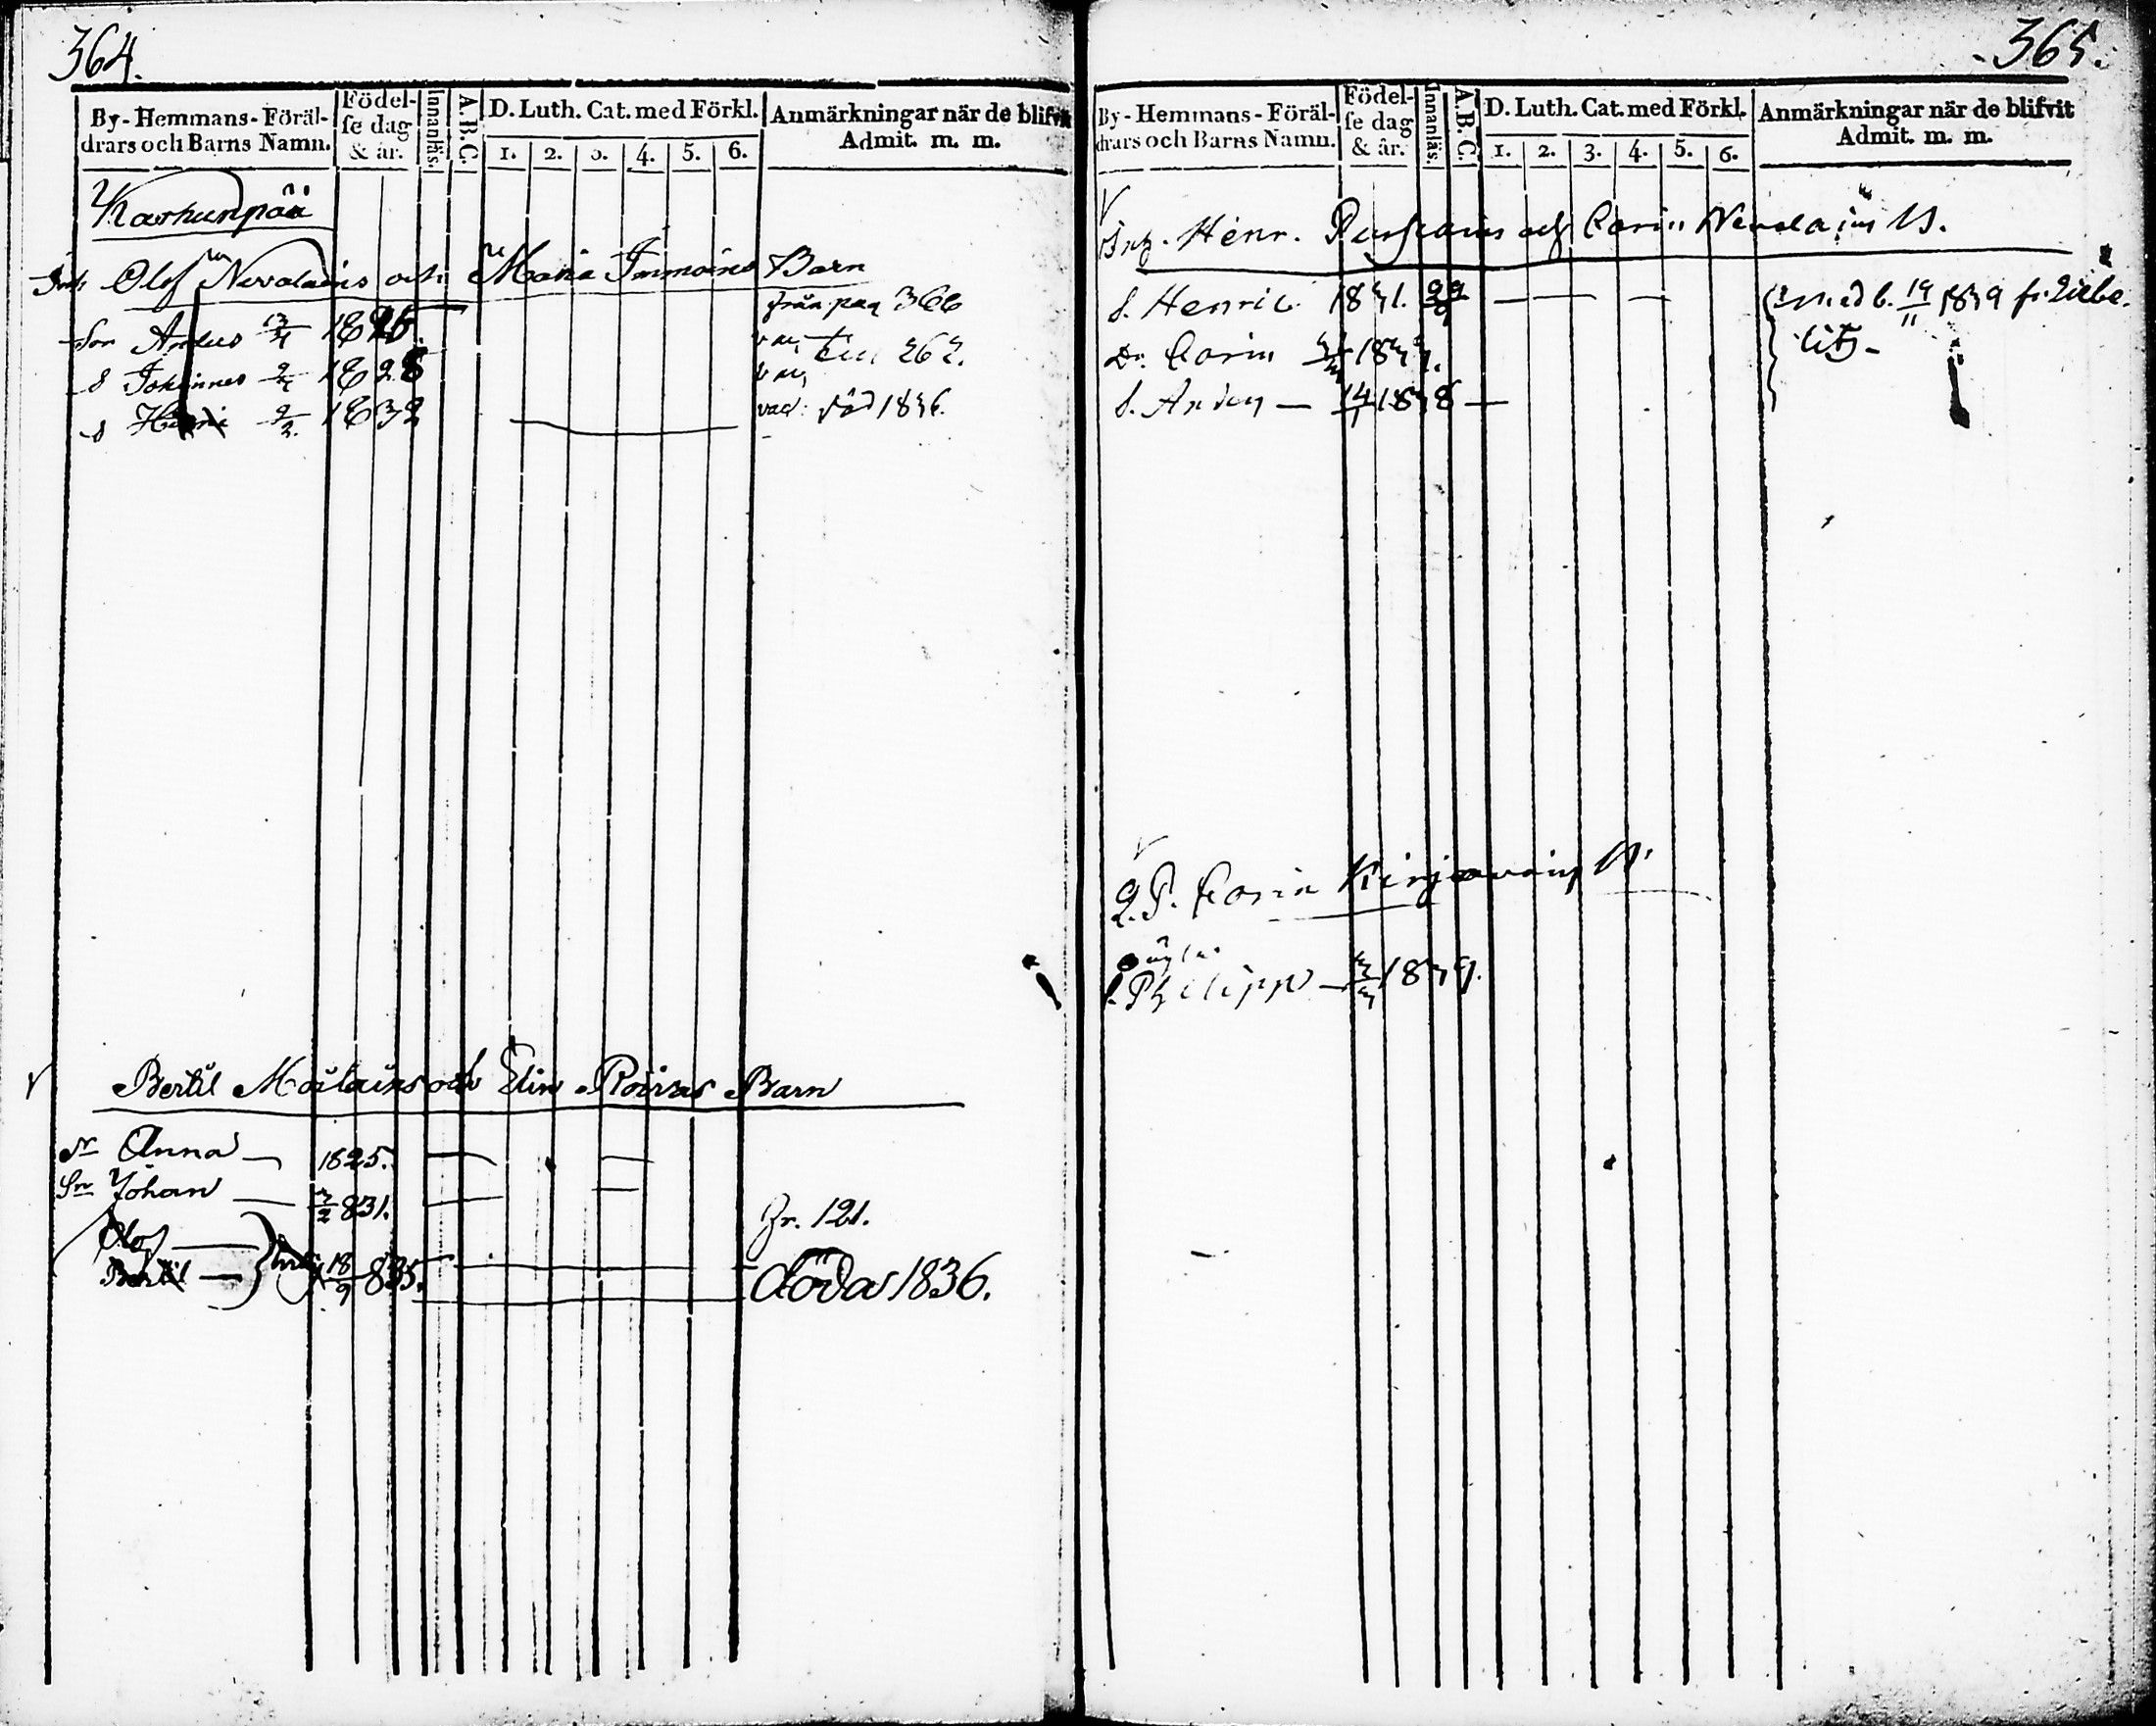 364.
By-Hemmans-Föräl-
drars och Barns Namn.
Födel-
se dag
& år.
Innanläs.
A.B.C.
D. Luth. Cat. med Förkl.
1. 2. 3. 4. 5. 6.
Anmärkningar när de blifvit
Admit. m. m.
Karhunpää
Olof Nevalains och Maria Immoins Barn
från pag 366
Son Anders
S Johannes 2/4 1828
262.
S Henric 2/2 1832
död 1836.
Bertil Moilains och Elin Roivas Barn
Dr Anna — 1825.
Sn Johan — 3/2 831.
Fr. 121.
Olof —
Bertil — 18/9 835.
döda 1836.
365.
By-Hemmans-Föräl-
drars och Barns Namn.
Födel-
se dag
& år.
Innanläs.
A.B.C.
D. Luth. Cat. med Förkl.
1. 2. 3. 4. 5. 6.
Anmärkningar när de blifvit
Admit. m. m.
Inh. Henr. och Carin Nevalains B.
S. Henric 1831. 22/9
med b. 19/11 1839 fr. Libe-
litz-
Dr. Carin 1833.
S. Anders — 14/1 1838
Q.P. Carin Kirjavains B.
oägta
S. Philipp — 1839.